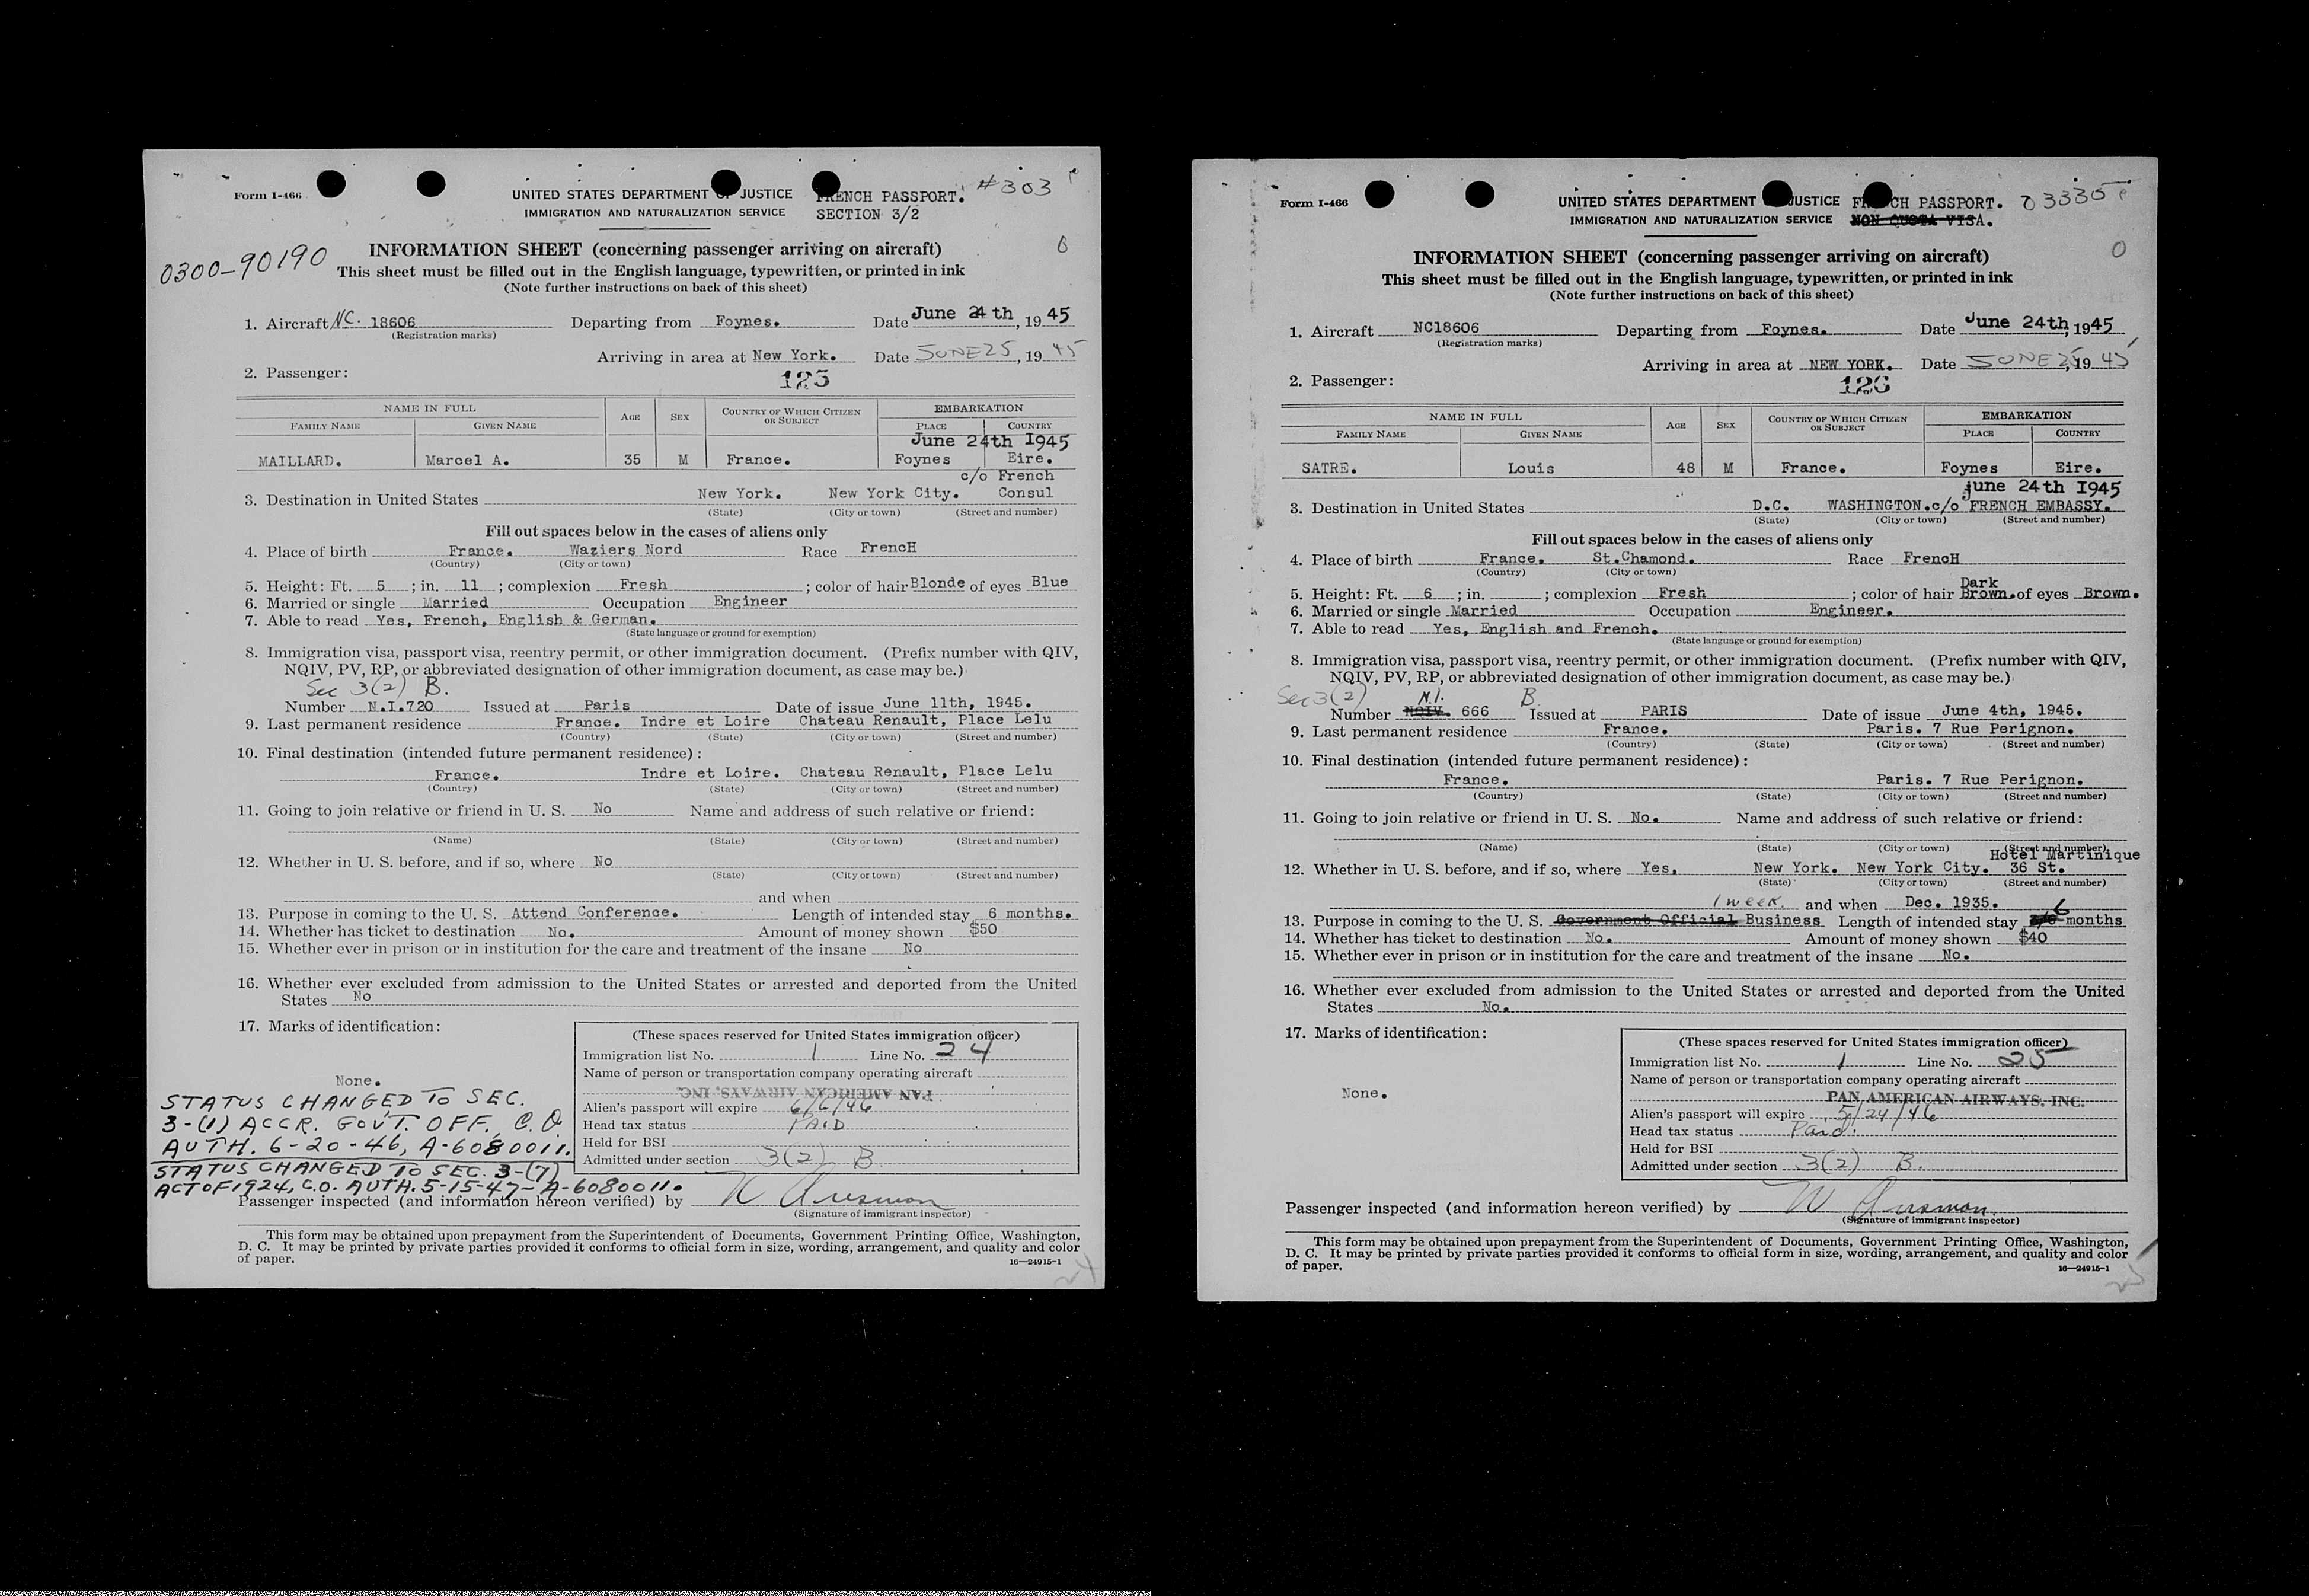 Form I-466
UNITED STATES DEPARTMENT OF JUSTICE
IMMIGRATION AND NATURALIZATION SERVICE
FRENCH PASSPORT. #303
SECTION 3/2
0300-90190
INFORMATION SHEET (concerning passenger arriving on aircraft)
This sheet must be filled out in the English language, typewritten, or printed in ink
(Note further instructions on back of this sheet)
1. Aircraft NC. 18606 Departing from Foynes. Date June 24th, 1945
(Registration marks)
Arriving in area at New York. Date JUNE 25, 1945
2. Passenger:
125
NAME IN FULL AGE SEX COUNTRY OF WHICH CITIZEN OR SUBJECT EMBARKATION
FAMILY NAME GIVEN NAME PLACE COUNTRY
June 24th 1945
MAILLARD. Marcel A. 35 M France. Foynes Eire.
c/o French
3. Destination in United States New York. New York City. Consul
(State) (City or town) (Street and number)
Fill out spaces below in the cases of aliens only
4. Place of birth France. Waziers Nord Race FrencH
(Country) (City or town)
5. Height: Ft. 5 ; in. 11 ; complexion Fresh ; color of hair Blonde of eyes Blue
6. Married or single Married Occupation Engineer
7. Able to read Yes, French, English & German.
(State language or ground for exemption)
8. Immigration visa, passport visa, reentry permit, or other immigration document. (Prefix number with QIV,
NQIV, PV, RP, or abbreviated designation of other immigration document, as case may be.)
Sec 3(2) B.
Number N.I.720 Issued at Paris Date of issue June 11th, 1945.
9. Last permanent residence France. Indre et Loire Chateau Renault, Place Lelu
(Country) (State) (City or town) (Street and number)
10. Final destination (intended future permanent residence):
France. Indre et Loire. Chateau Renault, Place Lelu
(Country) (State) (City or town) (Street and number)
11. Going to join relative or friend in U. S. No Name and address of such relative or friend:
(Name) (State) (City or town) (Street and number)
12. Whether in U. S. before, and if so, where No
(State) (City or town) (Street and number)
and when
13. Purpose in coming to the U. S. Attend Conference. Length of intended stay 6 months.
14. Whether has ticket to destination No. Amount of money shown $50
15. Whether ever in prison or in institution for the care and treatment of the insane No
16. Whether ever excluded from admission to the United States or arrested and deported from the United
States No
17. Marks of identification:
None.
(These spaces reserved for United States immigration officer)
Immigration list No. 1 Line No. 24
Name of person or transportation company operating aircraft
PAN AMERICAN AIRWAYS, INC.
Alien's passport will expire 6/6/46
Head tax status PAID
Held for BSI
Admitted under section 3(2) B.
STATUS CHANGED TO SEC.
3-(1) ACCR. GOV'T. OFF. C.O.
AUTH. 6-20-46, A-6080011.
STATUS CHANGED TO SEC. 3-(7)
ACT OF 1924, C.O. AUTH. 5-15-47-A-6080011.
Passenger inspected (and information hereon verified) by
(Signature of immigrant inspector)
This form may be obtained upon prepayment from the Superintendent of Documents, Government Printing Office, Washington,
D. C. It may be printed by private parties provided it conforms to official form in size, wording, arrangement, and quality and color
of paper. 16—24915-1
24
Form I-466
UNITED STATES DEPARTMENT OF JUSTICE
IMMIGRATION AND NATURALIZATION SERVICE
FRENCH PASSPORT. 03335
NON QUOTA VISA.
0
INFORMATION SHEET (concerning passenger arriving on aircraft)
This sheet must be filled out in the English language, typewritten, or printed in ink
(Note further instructions on back of this sheet)
1. Aircraft NC18606 Departing from Foynes. Date June 24th, 1945
(Registration marks)
Arriving in area at NEW YORK. Date JUNE 25, 1945
2. Passenger:
126
NAME IN FULL AGE SEX COUNTRY OF WHICH CITIZEN OR SUBJECT EMBARKATION
FAMILY NAME GIVEN NAME PLACE COUNTRY
SATRE. Louis 48 M France. Foynes Eire.
june 24th 1945
3. Destination in United States D.C. WASHINGTON.c/o FRENCH EMBASSY.
(State) (City or town) (Street and number)
Fill out spaces below in the cases of aliens only
4. Place of birth France. St.Chamond. Race FrencH
(Country) (City or town)
Dark
5. Height: Ft. 6 ; in. ; complexion Fresh ; color of hair Brown. of eyes Brown.
6. Married or single Married Occupation Engineer.
7. Able to read Yes, English and French.
(State language or ground for exemption)
8. Immigration visa, passport visa, reentry permit, or other immigration document. (Prefix number with QIV,
NQIV, PV, RP, or abbreviated designation of other immigration document, as case may be.)
Sec 3(2) N.I. B.
Number NQIV. 666 Issued at PARIS Date of issue June 4th, 1945.
9. Last permanent residence France. Paris. 7 Rue Perignon.
(Country) (State) (City or town) (Street and number)
10. Final destination (intended future permanent residence):
France. Paris. 7 Rue Perignon.
(Country) (State) (City or town) (Street and number)
11. Going to join relative or friend in U. S. No. Name and address of such relative or friend:
(Name) (State) (City or town) (Street and number)
Hotel Martinique
12. Whether in U. S. before, and if so, where Yes. New York. New York City. 36 St.
(State) (City or town) (Street and number)
1 week. and when Dec. 1935.
13. Purpose in coming to the U. S. Government Official Business Length of intended stay 6 months
14. Whether has ticket to destination No. Amount of money shown $40
15. Whether ever in prison or in institution for the care and treatment of the insane No.
16. Whether ever excluded from admission to the United States or arrested and deported from the United
States No.
17. Marks of identification:
None.
(These spaces reserved for United States immigration officer)
Immigration list No. 1 Line No. 25
Name of person or transportation company operating aircraft
PAN AMERICAN AIRWAYS, INC.
Alien's passport will expire 5/24/46
Head tax status Paid.
Held for BSI
Admitted under section 3(2) B.
Passenger inspected (and information hereon verified) by
(Signature of immigrant inspector)
This form may be obtained upon prepayment from the Superintendent of Documents, Government Printing Office, Washington,
D. C. It may be printed by private parties provided it conforms to official form in size, wording, arrangement, and quality and color
of paper. 16—24915-1
25